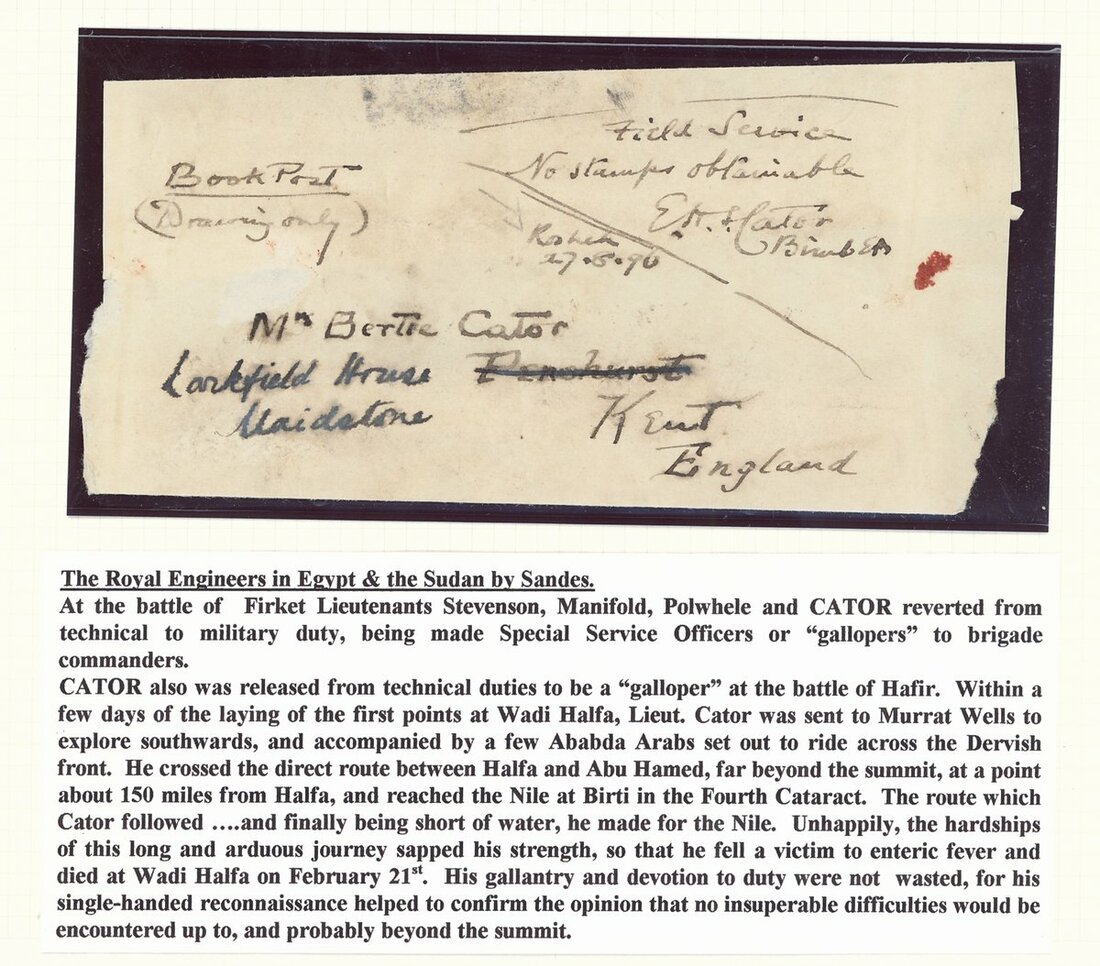 Field Service
No stamps obtainable
Book Post
(Drawing only)
Cator
27.6.96
Mrs Bertie Cator
Larkfield House Penshurst
Maidstone
Kent
England
The Royal Engineers in Egypt & the Sudan by Sandes.
At the battle of Firket Lieutenants Stevenson, Manifold, Polwhele and CATOR reverted from
technical to military duty, being made Special Service Officers or “gallopers” to brigade
commanders.
CATOR also was released from technical duties to be a “galloper” at the battle of Hafir. Within a
few days of the laying of the first points at Wadi Halfa, Lieut. Cator was sent to Murrat Wells to
explore southwards, and accompanied by a few Ababda Arabs set out to ride across the Dervish
front. He crossed the direct route between Halfa and Abu Hamed, far beyond the summit, at a point
about 150 miles from Halfa, and reached the Nile at Birti in the Fourth Cataract. The route which
Cator followed ….and finally being short of water, he made for the Nile. Unhappily, the hardships
of this long and arduous journey sapped his strength, so that he fell a victim to enteric fever and
died at Wadi Halfa on February 21st. His gallantry and devotion to duty were not wasted, for his
single-handed reconnaissance helped to confirm the opinion that no insuperable difficulties would be
encountered up to, and probably beyond the summit.